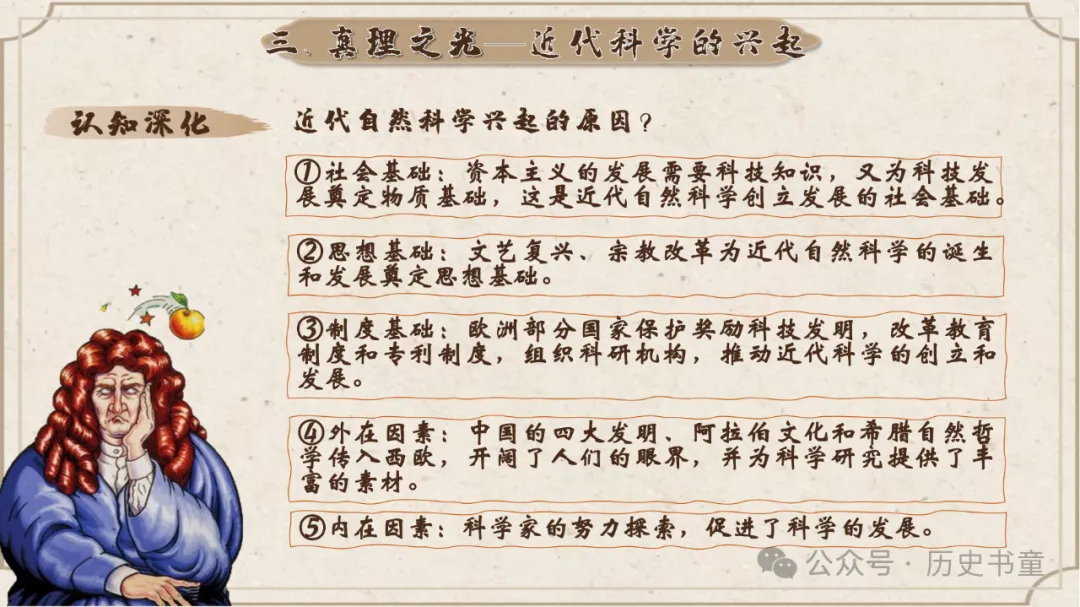 三、真理之光—近代科学的兴起
认知深化
近代自然科学兴起的原因？
①社会基础：资本主义的发展需要科技知识，又为科技发
展奠定物质基础，这是近代自然科学创立发展的社会基础。
②思想基础：文艺复兴、宗教改革为近代自然科学的诞生
和发展奠定思想基础。
③制度基础：欧洲部分国家保护奖励科技发明，改革教育
制度和专利制度，组织科研机构，推动近代科学的创立和
发展。
④外在因素：中国的四大发明、阿拉伯文化和希腊自然哲
学传入西欧，开阔了人们的眼界，并为科学研究提供了丰
富的素材。
⑤内在因素：科学家的努力探索，促进了科学的发展。
公众号·历史书童